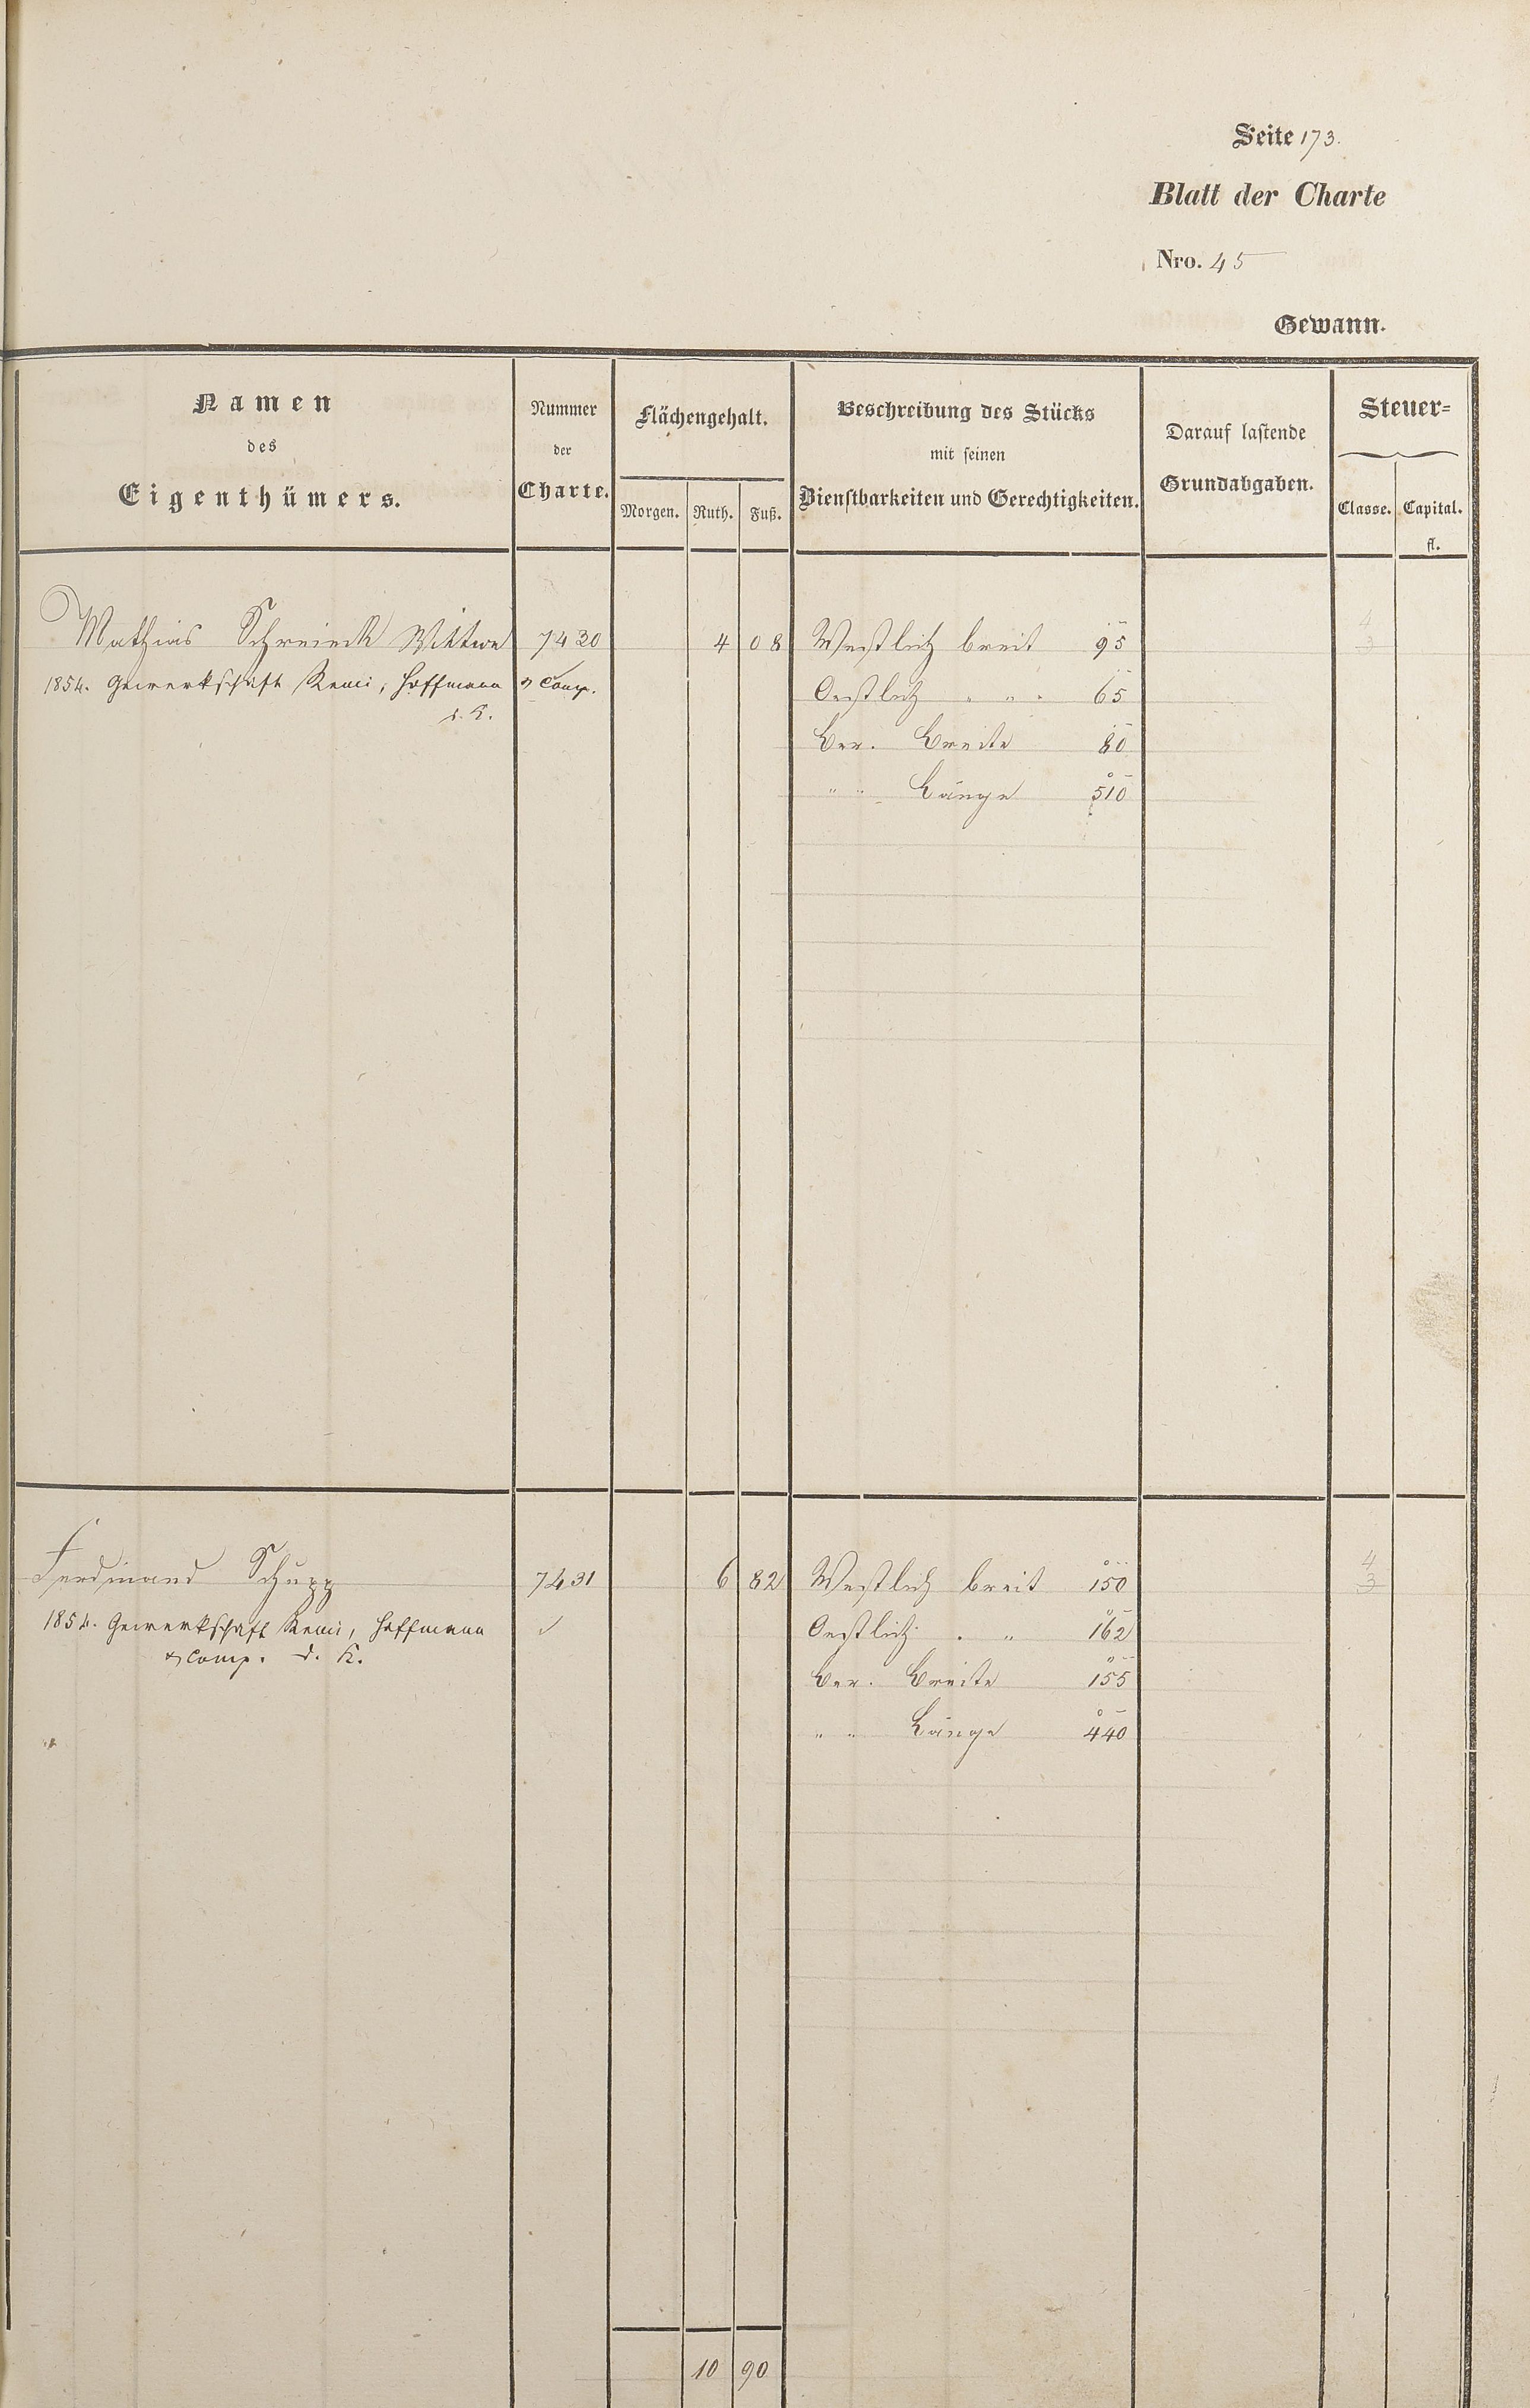 Seite 173.
Blatt der Charte
Nro. 45
Gewann.
Namen
des
Eigenthümers.
Nummer
der
Charte.
Flächengehalt.
Morgen. Ruth. Fuß.
Beschreibung des Stücks
mit seinen
Dienstbarkeiten und Gerechtigkeiten.
Darauf lastende
Grundabgaben.
Steuer=
Classe. Capital.
fl.
Mathias Schreieck Wittwe 7430 4 08 Westlich breit 95 4
3
1854. Gewerkschaft Remi, Hoffmann & Comp. Oestlich " " 65
d. K.
Ber. Breite 80
" " Länge 510
Ferdinand Schupp 7431 6 82 Westlich breit 150 4
3
1854. Gewerkschaft Remi, Hoffmann Oestlich " " 162
& Comp. d. K.
Ber. Breite 155
" " Länge 440
10 90